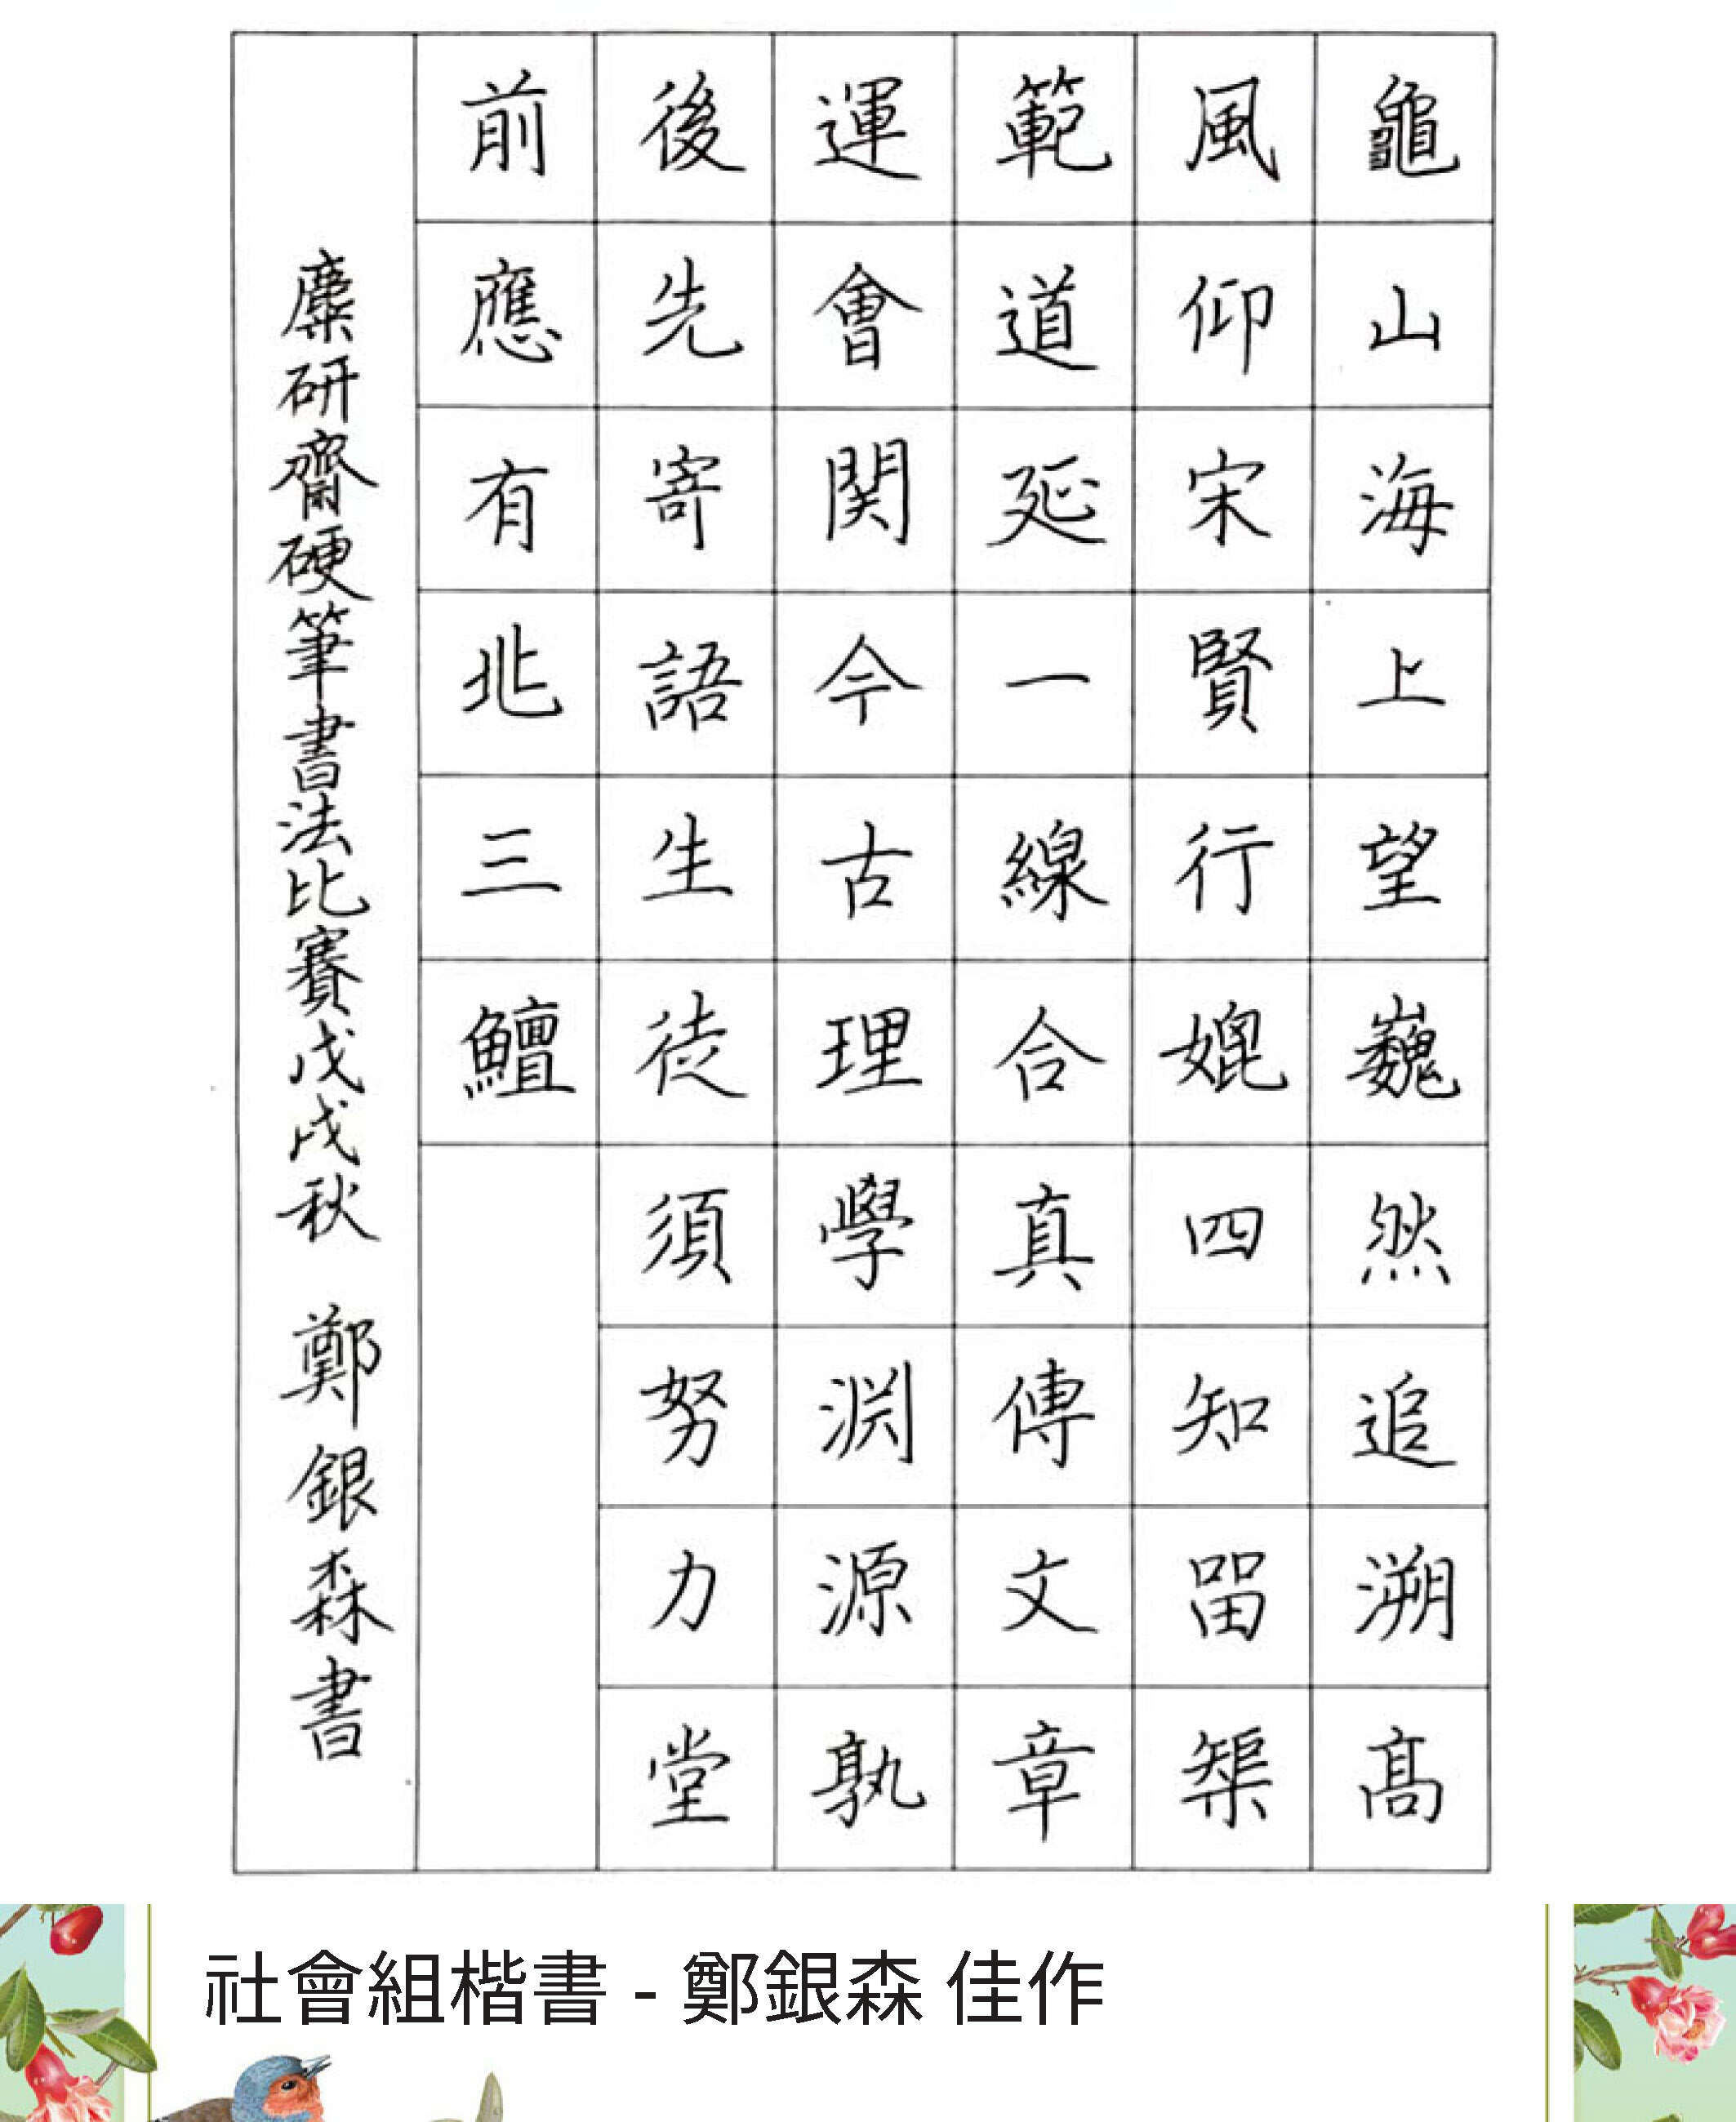 龜山海上望巍然追溯高
風仰宋賢行媲四知留榘
範道延一線合真傳文章
運會関今古理學渊源孰
後先寄語生徒須努力堂
前應有兆三鱣
麋研齋硬筆書法比賽戊戌秋 鄭銀森書
社會組楷書 - 鄭銀森 佳作